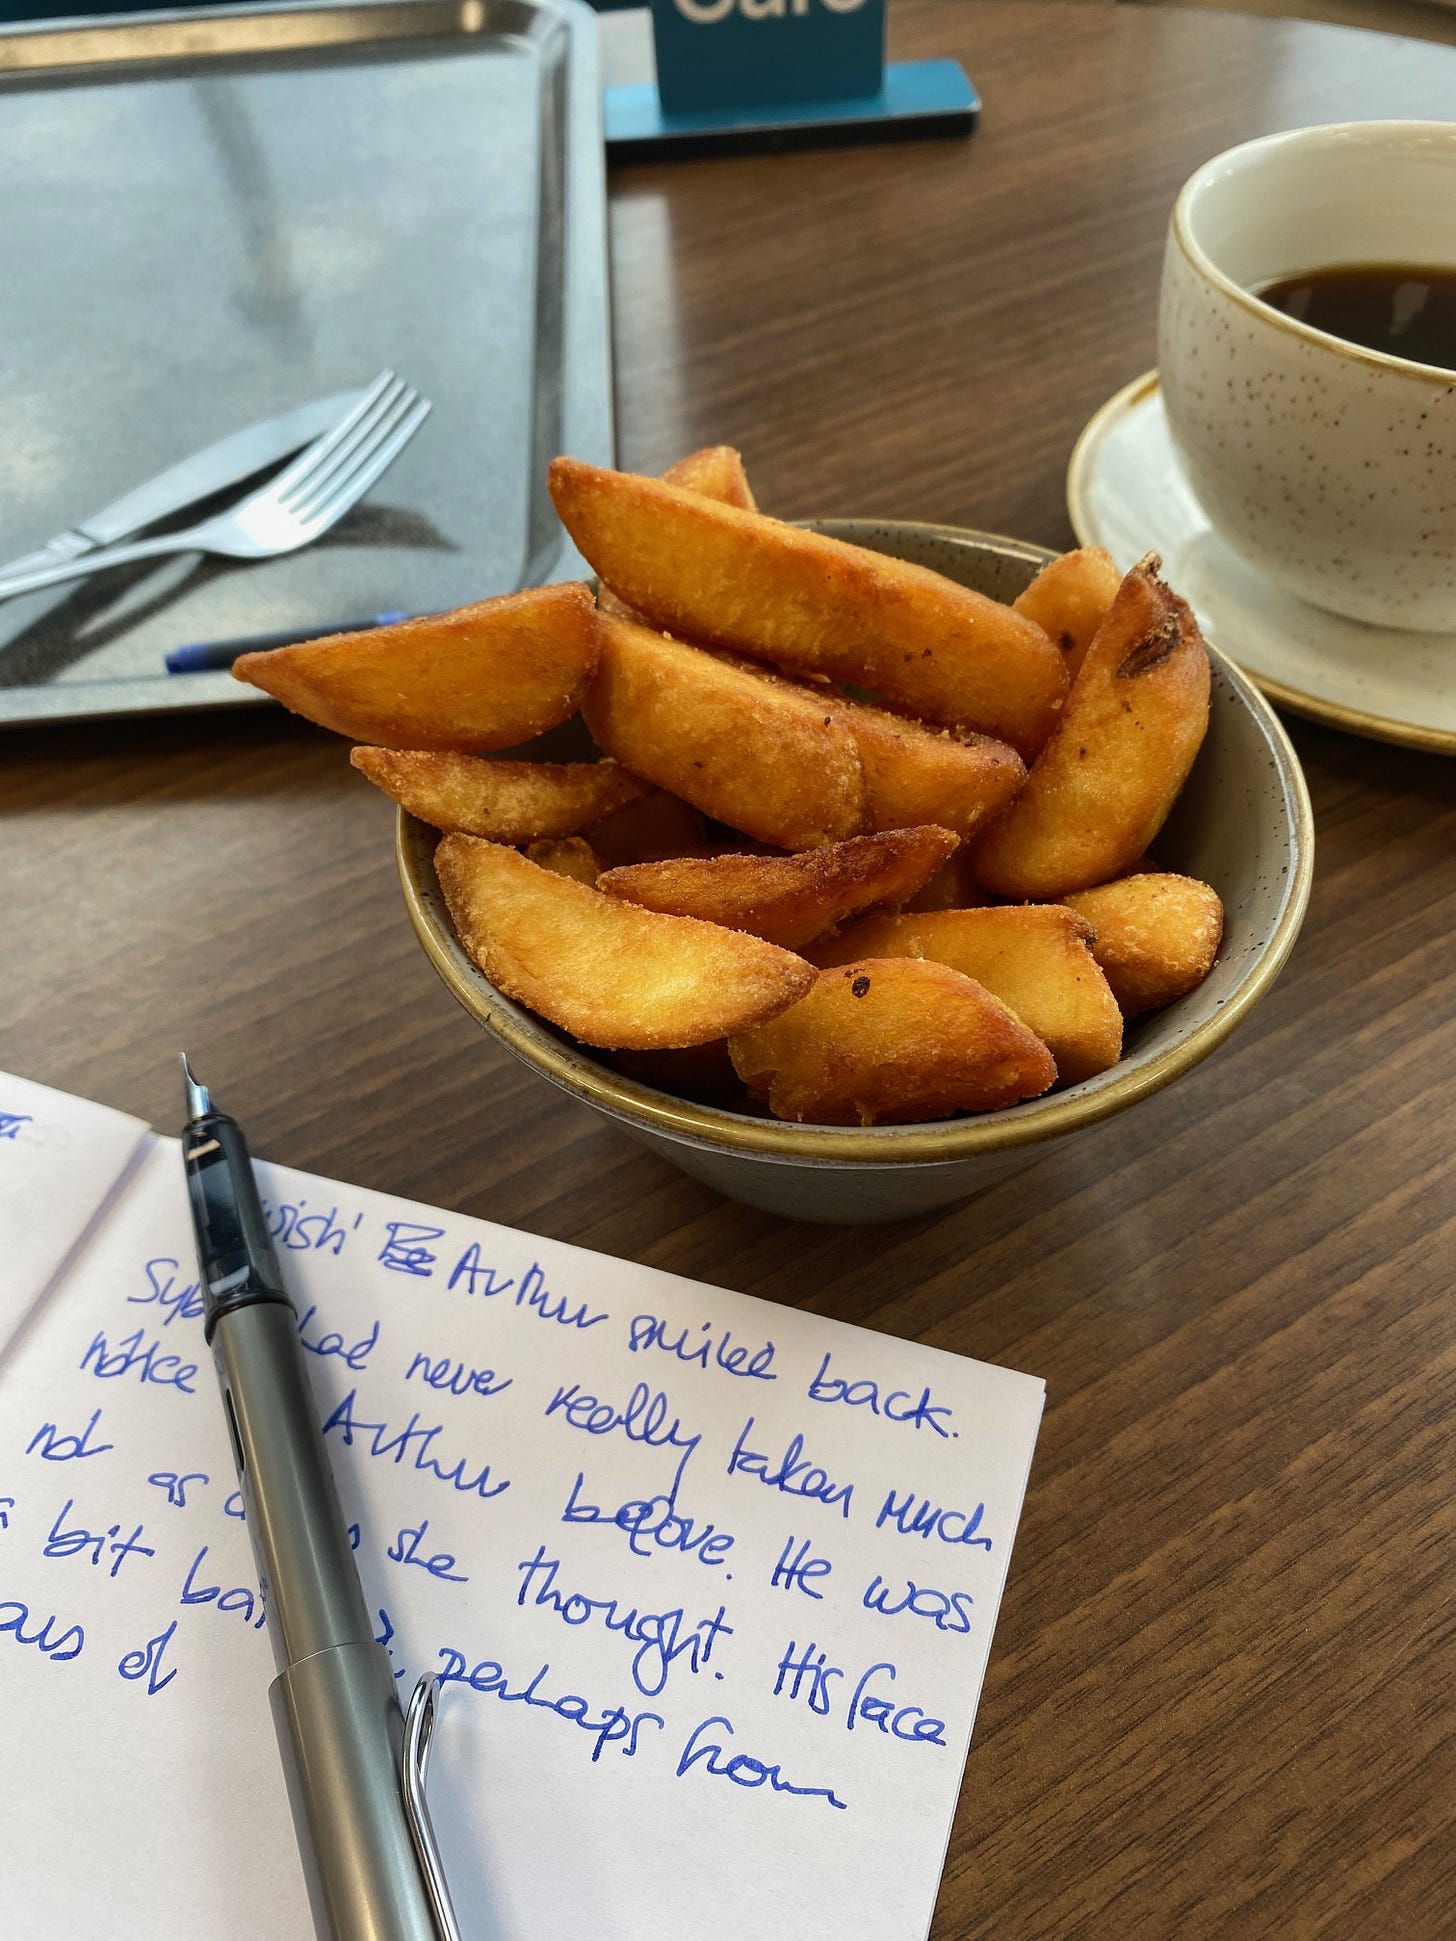 Café
wish' Arthur smiled back.
had never really taken much
notice Arthur before. He was
not as she thought. His face
a bit perhaps from
of